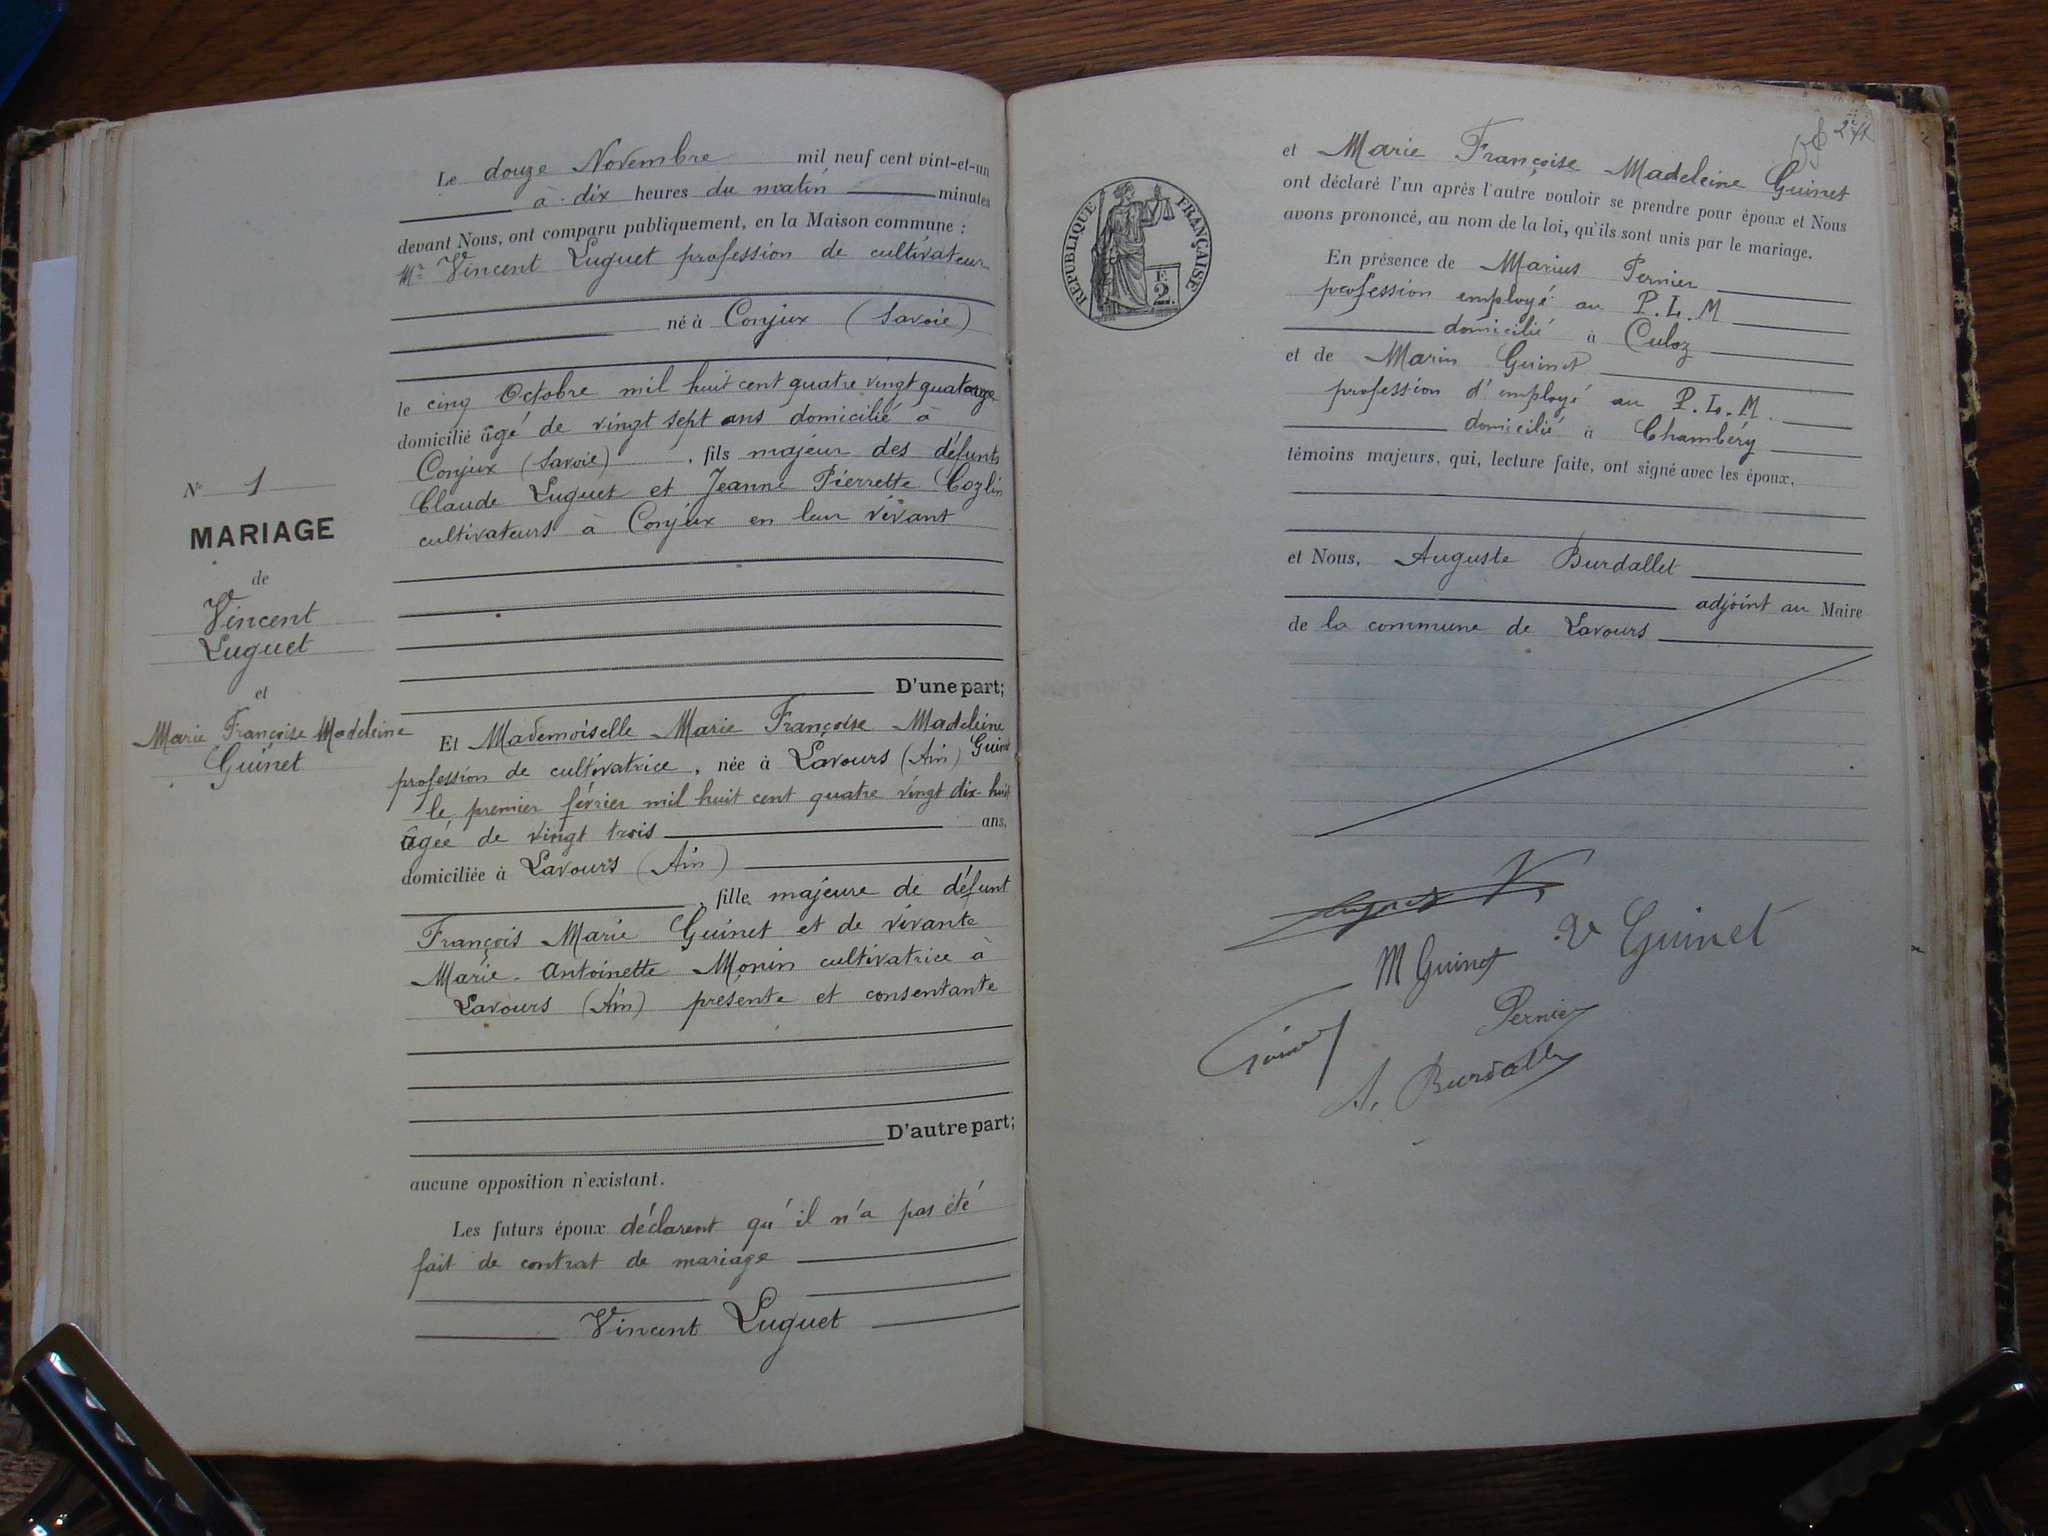 Le douze Novembre mil neuf cent vint-et-un
à dix heures du matin minutes
devant Nous, ont comparu publiquement, en la Maison commune :
Mr Vincent Luguet profession de cultivateur
né à Conjux (Savoie)
le cinq Octobre mil huit cent quatre vingt quatorze
domicilié âgé de vingt sept ans domicilié à
Conjux (Savoie) , fils majeur des défunts
Claude Luguet et Jeanne Pierrette Cozlin
cultivateurs à Conjux en leur vivant
D'une part;
N° 1
MARIAGE
de
Vincent
Luguet
et
Marie Françoise Madeleine
Guinet
Et Mademoiselle Marie Françoise Madeleine
Guinet
profession de cultivatrice, née à Lavours (Ain)
le premier février mil huit cent quatre vingt dix-huit
âgée de vingt trois ans,
domiciliée à Lavours (Ain)
, fille majeure de défunt
François Marie Guinet et de vivante
Marie-Antoinette Monin cultivatrice à
Lavours (Ain) présente et consentante
D'autre part;
aucune opposition n'existant.
Les futurs époux déclarent qu'il n'a pas été
fait de contrat de mariage
Vincent Luguet
2
RÉPUBLIQUE FRANÇAISE
2F
et Marie Françoise Madeleine Guinet
ont déclaré l'un après l'autre vouloir se prendre pour époux et Nous
avons prononcé, au nom de la loi, qu'ils sont unis par le mariage.
En présence de Marius Pernier
profession employé au P.L.M
domicilié à Culoz
et de Marin Guinet
profession d'employé au P.L.M.
domicilié à Chambéry
témoins majeurs, qui, lecture faite, ont signé avec les époux,
et Nous, Auguste Burdallet
adjoint au Maire
de la commune de Lavours
Luguet V.
M Guinet Ve Guinet
Guinet
Pernier
A. Burdallet